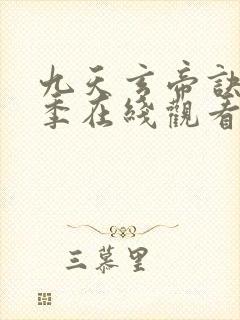 九天玄帝訣
季在綫觀看
三慕里